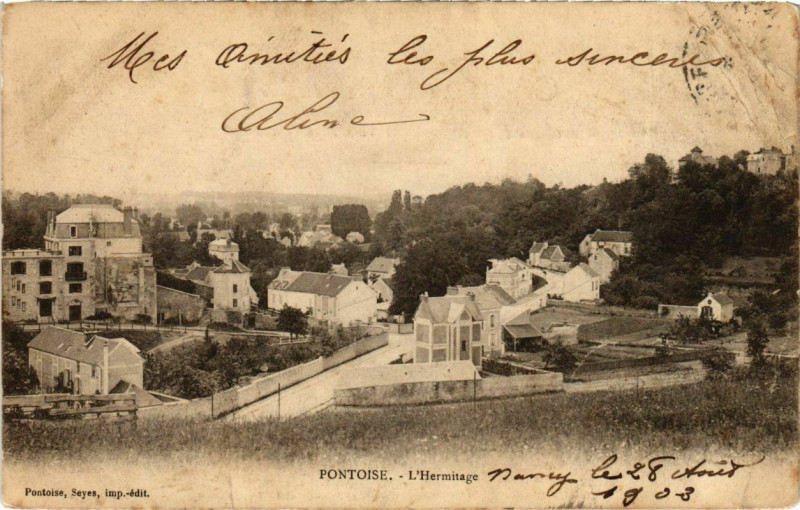 Mes Amitiés les plus sincères
Aline
PONTOISE. - L'Hermitage
Nancy le 28 Août
1903
Pontoise, Seyes, imp.-édit.